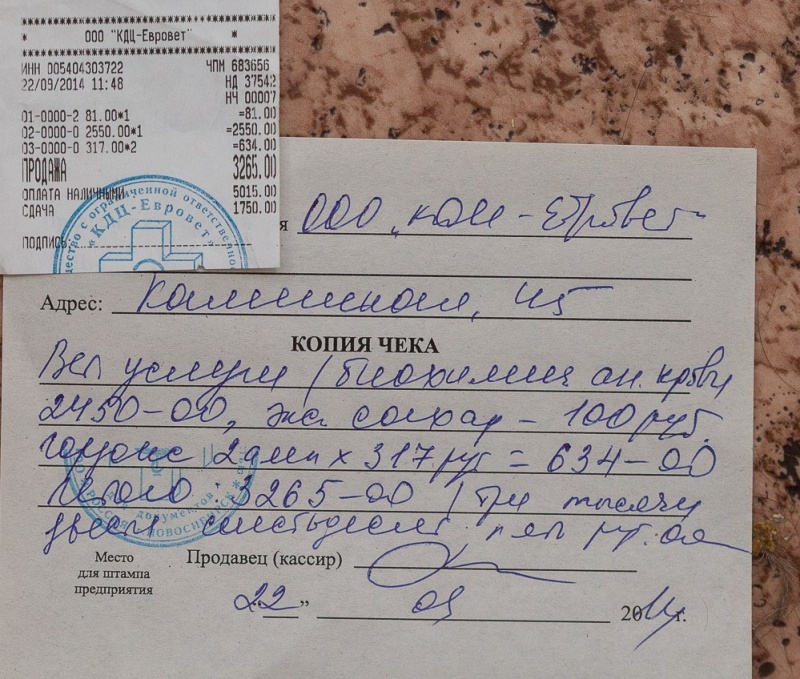 ************************
* ООО "КДЦ-Евровет" *
************************
ИНН 005404303722 ЧПМ 683656
22/09/2014 11:48 НД 37542
НЧ 00007
01-0000-2 81.00*1 =81.00
02-0000-0 2550.00*1 =2550.00
03-0000-0 317.00*2 =634.00
ПРОДАЖА 3265.00
ОПЛАТА НАЛИЧНЫМИ 5015.00
СДАЧА 1750.00
ПОДПИСЬ
с ограниченной ответственностью
"КДЦ-Евровет"
я ООО "КДЦ-Евровет"
Адрес: 45
КОПИЯ ЧЕКА
Вет услуги / биохимия ан. крови
2450-00, сахар - 100 руб.
2 амп х 317 руб = 634-00
Итого: 3265-00 / три тысячи
двести шестьдесят пять руб. 00
документов
РОССИЯ НОВОСИБИРСК
Место
для штампа
предприятия
Продавец (кассир)
22 " 09 2014г.